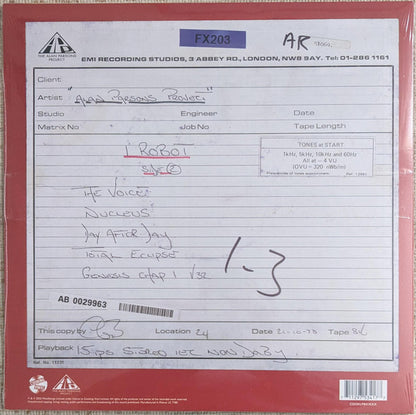 FX203
AR
THE ALAN PARSONS
PROJECT
EMI RECORDING STUDIOS, 3 ABBEY RD., LONDON, NW8 9AY. Tel: 01-286 1161
Client
Artist "ALAN PARSONS PROJECT"
Studio Engineer Date
Matrix No Job No Tape Length
I ROBOT
SIDE 2
TONES at START
1kHz, 5kHz, 10kHz and 60Hz
All at - 4 VU
(OVU - 320 nWb/m)
"THE VOICE"
NUCLEUS
DAY AFTER DAY
TOTAL ECLIPSE
GENESIS CHAP 1 V32
1-3
AB 0029963
This copy by Location 24 Date Tape
Playback 15 ips STEREO IEC NON DOLBY
THE ALAN PARSONS
PROJECT